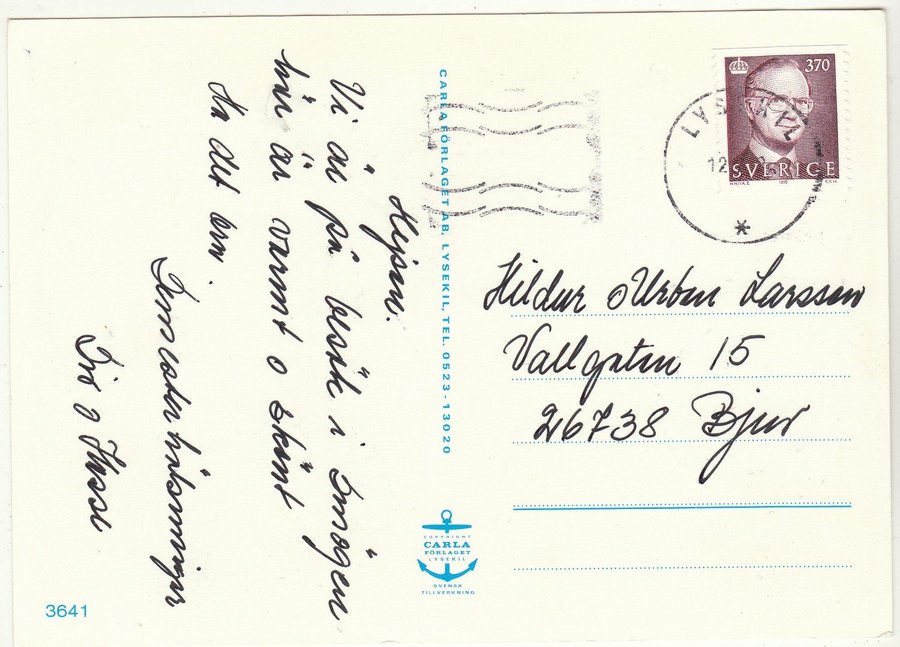 Hejsan.
Vi är på besök i Smögen
här är varmt o skönt
Ha det bra.
Iris o Hasse
CARLA FÖRLAGET AB, LYSEKIL, TEL. 0523-13020
370
SVERIGE
1995
LYSEKIL
12
Hildur o Urban Larsson
Vallgatan 15
26738 Bjuv
COPYRIGHT
CARLA
FÖRLAGET
LYSEKIL
SVENSK
TILLVERKNING
3641